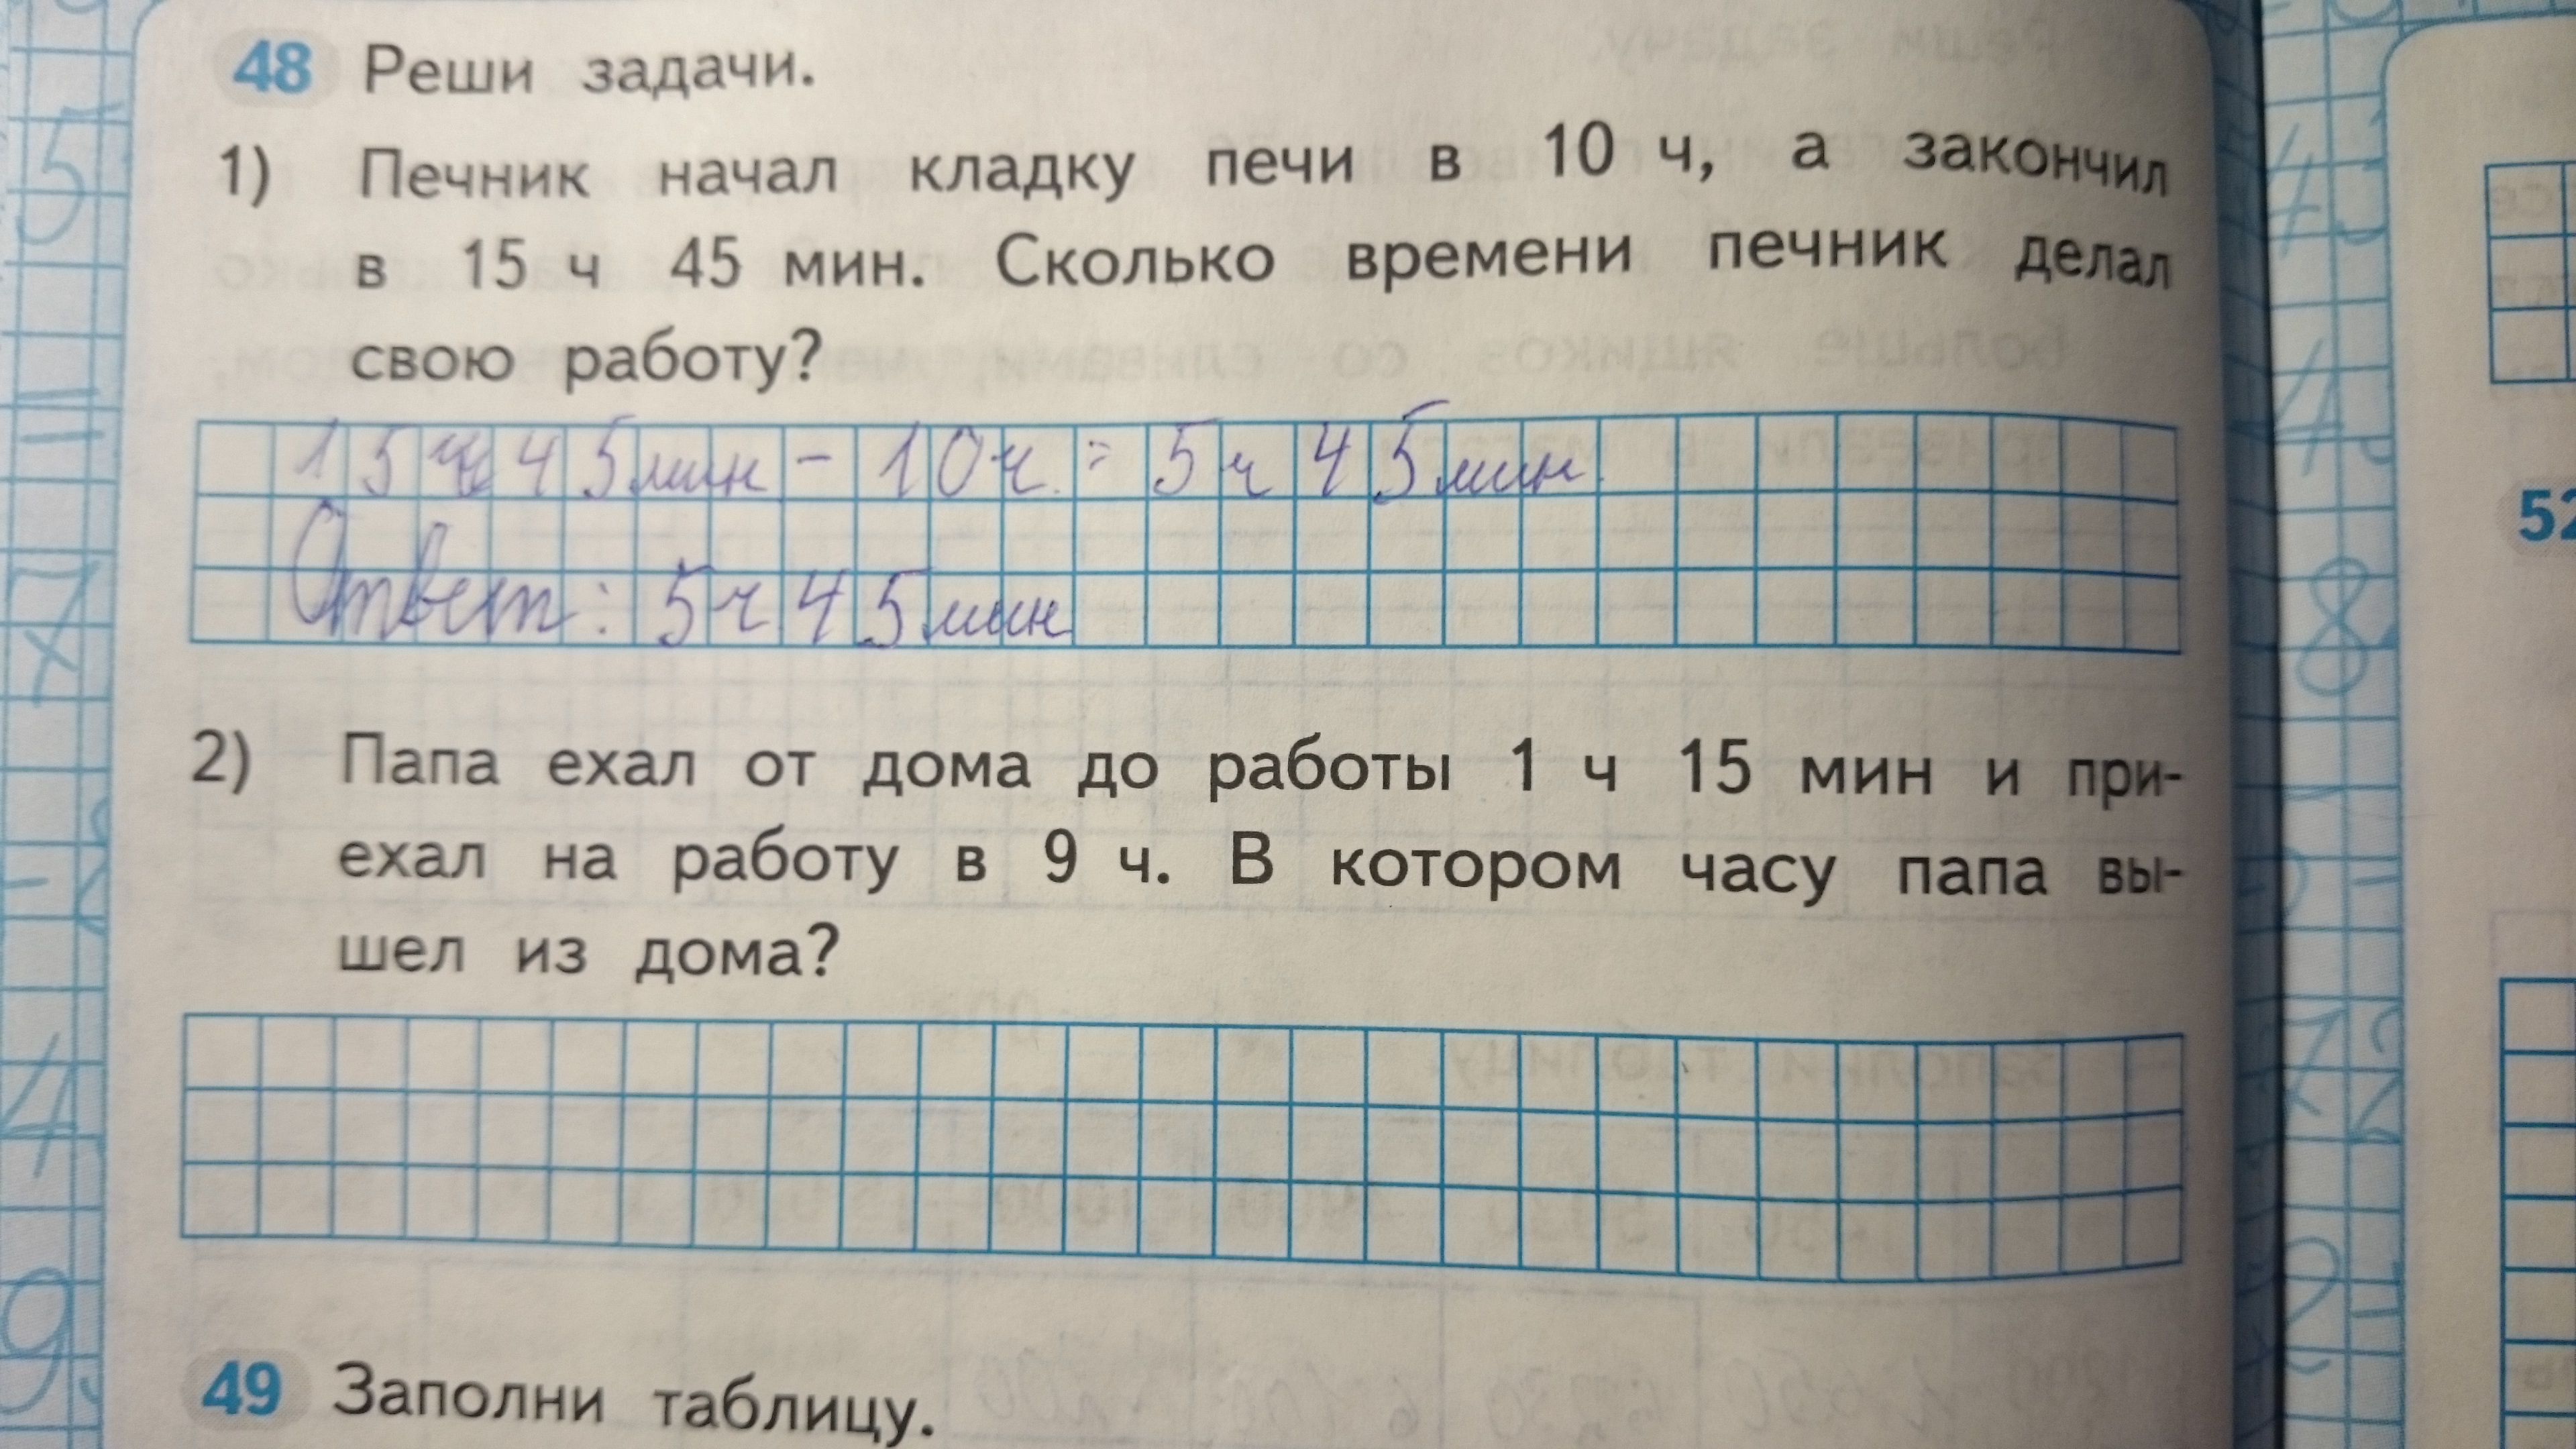 48 Реши задачи.
1) Печник начал кладку печи в 10 ч, а закончил
в 15 ч 45 мин. Сколько времени печник делал
свою работу?
15 ч 45 мин - 10 ч. = 5 ч 45 мин.
Ответ: 5 ч 45 мин
2) Папа ехал от дома до работы 1 ч 15 мин и при-
ехал на работу в 9 ч. В котором часу папа вы-
шел из дома?
49 Заполни таблицу.
52